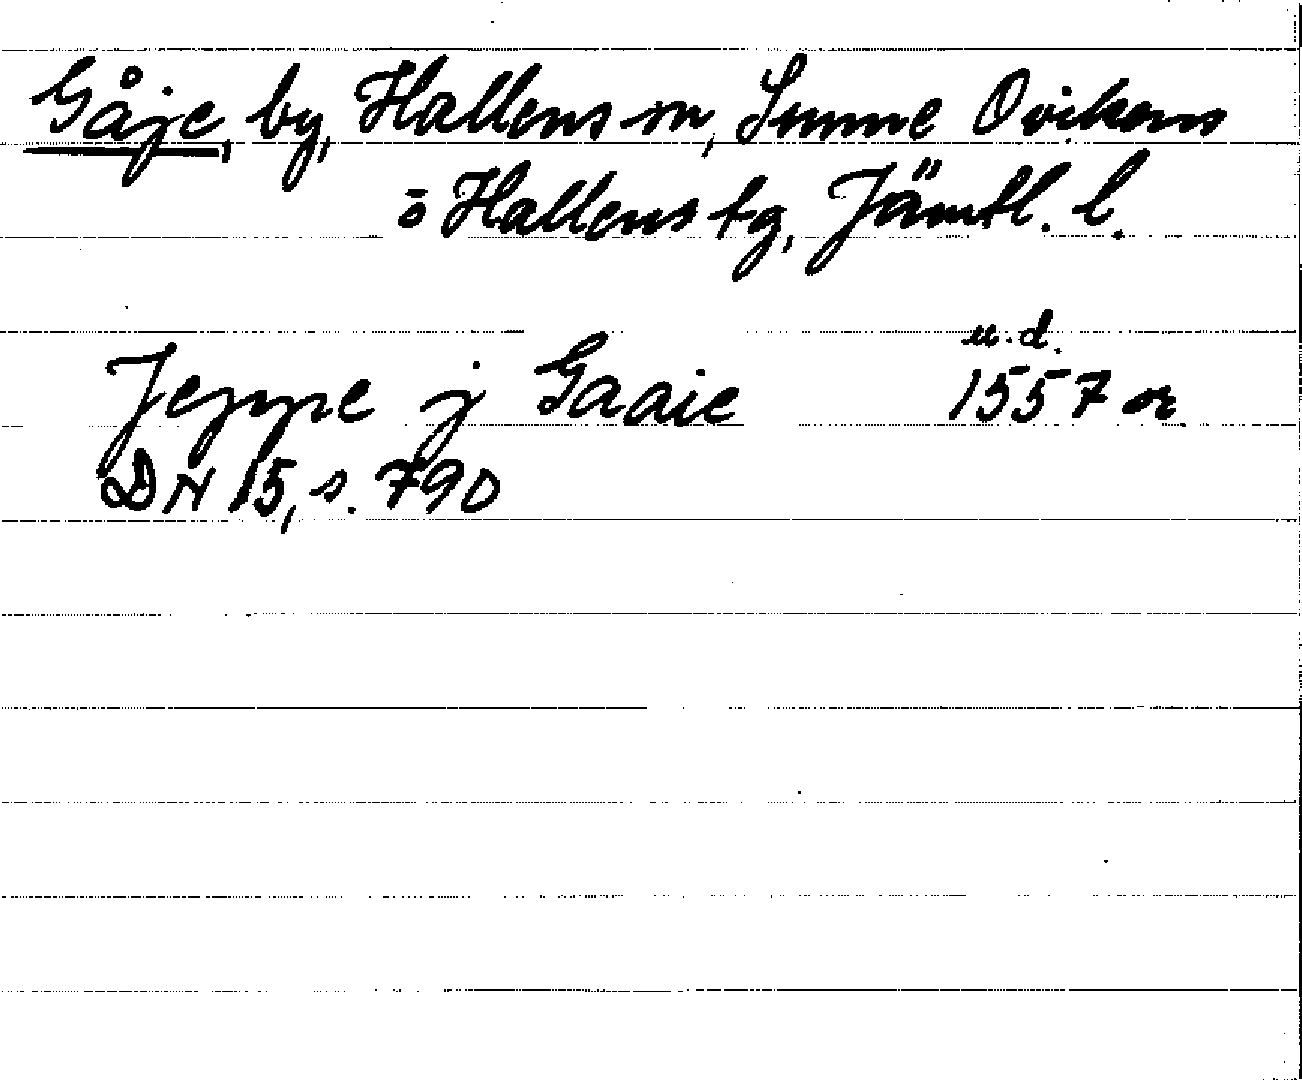 Gåje, by, Hallens sn, Sunne Ovikens
o Hallens tg, Jämtl. l.
u.d.
Jeppe j Gaaie 1557 or.
DN 15, s. 790